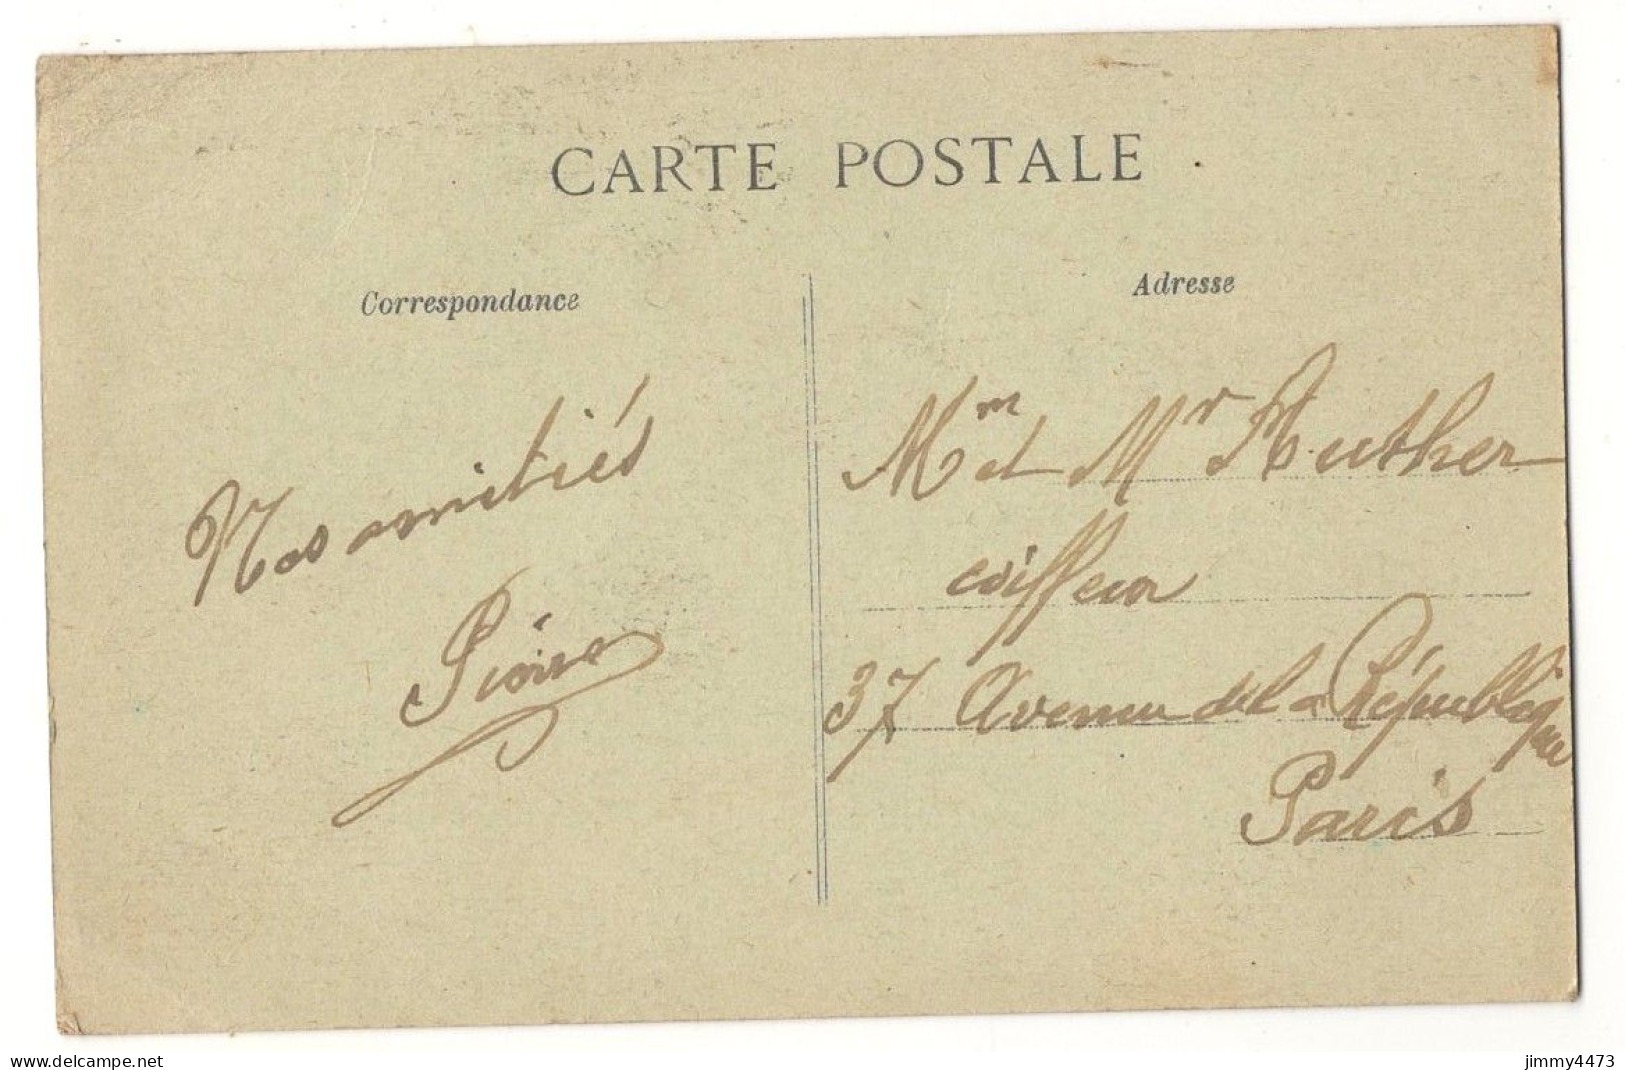 CARTE POSTALE
Correspondance
Nos amitiés
Adresse
Mm et Mr Ruther
coiffeur
37 Avenue de la République
Paris
www.delcampe.net
jimmy4473